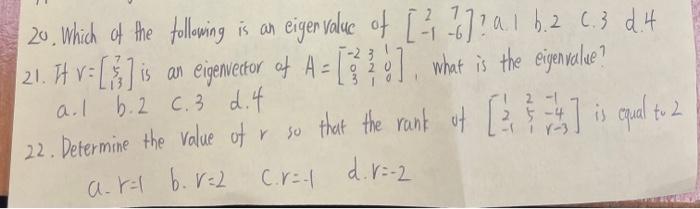 20. Which of the following is an eigenvalue of [2 7 -1 -6]? a. 1 b. 2 c. 3 d. 4
21. If v = [7 5 13] is an eigenvector of A = [-2 3 1 0 2 0 3 1 0], what is the eigenvalue?
a. 1 b. 2 c. 3 d. 4
22. Determine the value of r so that the rank of [1 2 -1 2 5 -4 -1 1 r-3] is equal to 2
a. r=1 b. r=2 c. r=-1 d. r=-2